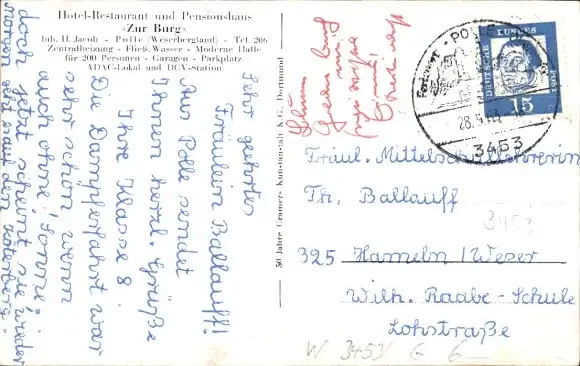 Hotel-Restaurant und Pensionshaus
»Zur Burg«
Inh. H. Jacob - Polle (Weserbergland) - Tel. 206
Zentralheizung - Fließ. Wasser - Moderne Halle
für 200 Personen - Garagen - Parkplatz
ADAC-Lokal und DCV-Station
Sehr geehrtes
Fräulein Ballauff!
Aus Polle sendet
Ihnen herzl. Grüße
Ihre Klasse 8.
Die Dampferfahrt war
sehr schön wenn
auch ohne Sonne;
doch jetzt scheint sie wieder
morgen geht's auf den Köterberg.
50 Jahre Cramers Kunstanstalt K.G., Dortmund
POLLE
28.9.
3453
DEUTSCHE BUNDESPOST
15
Fräul. Mittelschullehrerin
Th. Ballauff
3453
325 Hameln / Weser
Wilh. Raabe-Schule
Lohstraße
W 3453 G 6